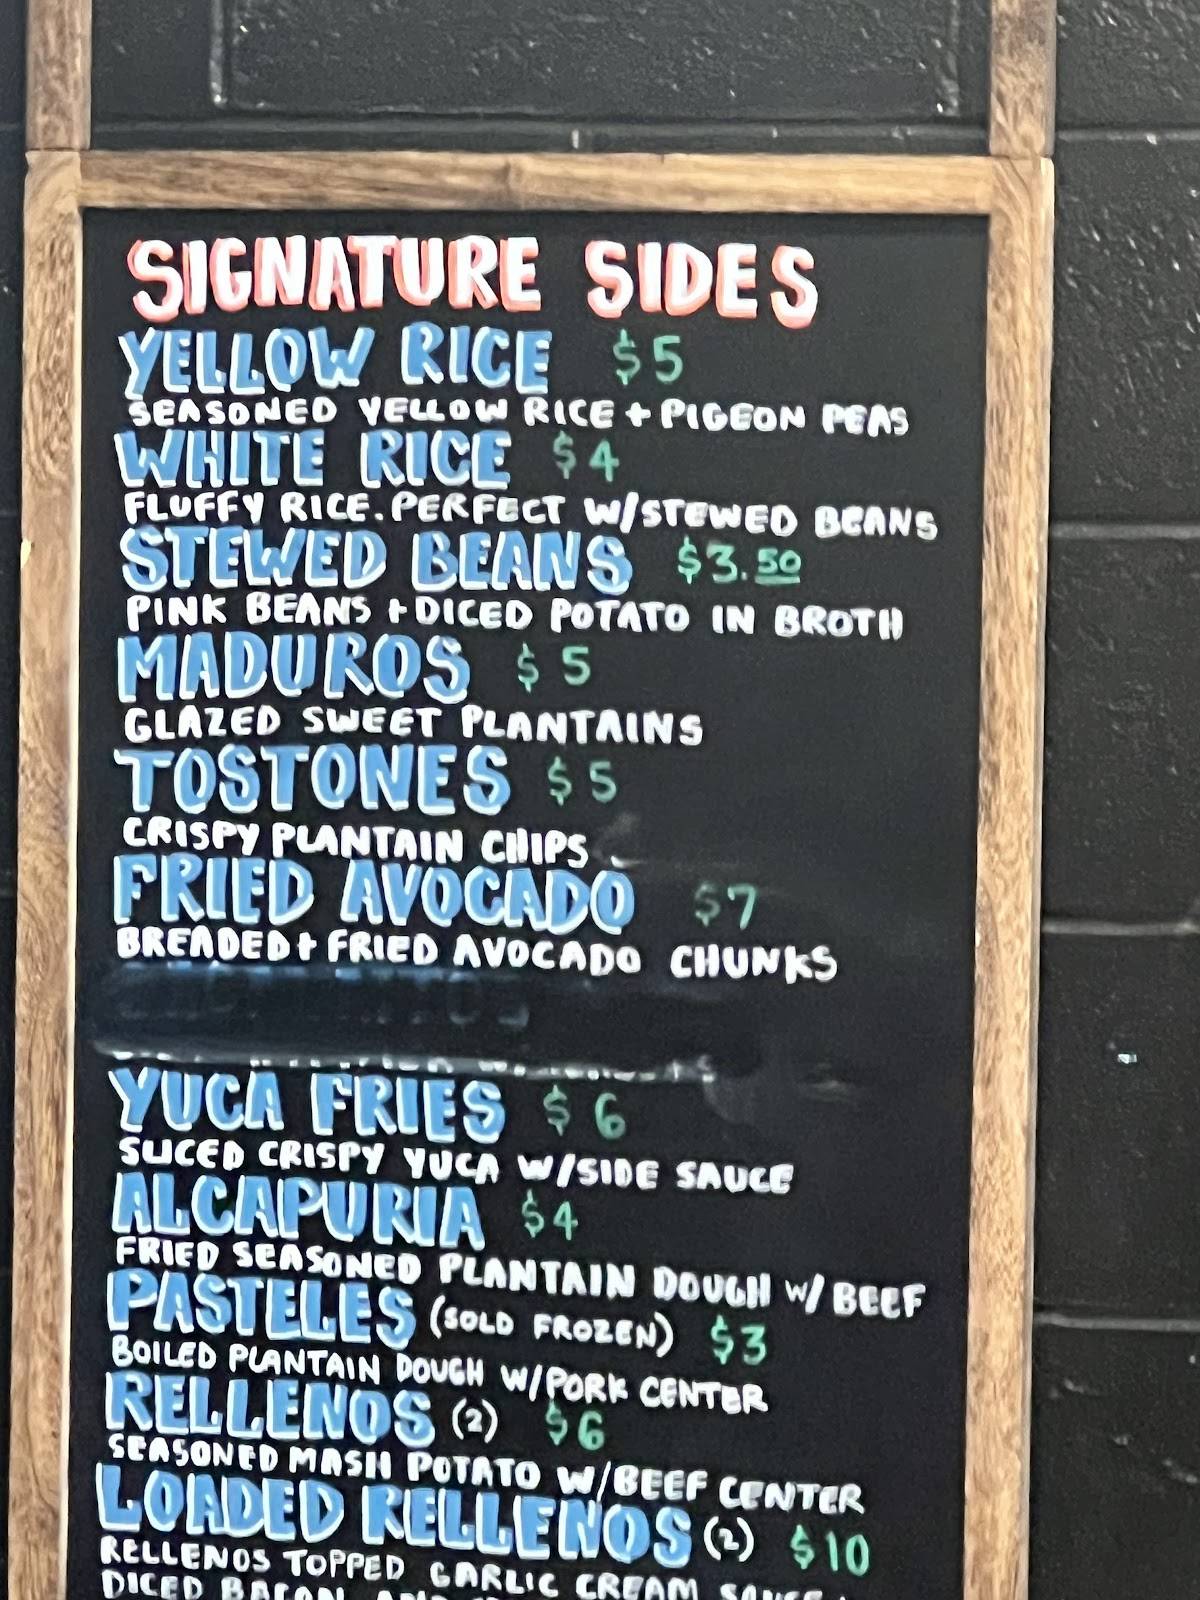 SIGNATURE SIDES
YELLOW RICE $5
SEASONED YELLOW RICE + PIGEON PEAS
WHITE RICE $4
FLUFFY RICE. PERFECT W/STEWED BEANS
STEWED BEANS $3.50
PINK BEANS + DICED POTATO IN BROTH
MADUROS $5
GLAZED SWEET PLANTAINS
TOSTONES $5
CRISPY PLANTAIN CHIPS
FRIED AVOCADO $7
BREADED + FRIED AVOCADO CHUNKS
YUCA FRIES $6
SLICED CRISPY YUCA W/SIDE SAUCE
ALCAPURIA $4
FRIED SEASONED PLANTAIN DOUGH W/ BEEF
PASTELES (SOLD FROZEN) $3
BOILED PLANTAIN DOUGH W/PORK CENTER
RELLENOS (2) $6
SEASONED MASH POTATO W/BEEF CENTER
LOADED RELLENOS (2) $10
RELLENOS TOPPED GARLIC CREAM SAUCE
DICED BACON AND